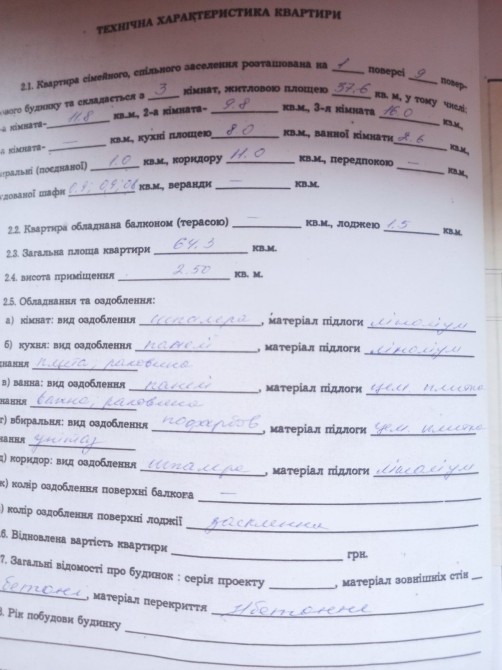 ТЕХНІЧНА ХАРАКТЕРИСТИКА КВАРТИРИ
2.1. Квартира сімейного, спільного заселення розташована на 1 поверсі 9 повер-
вого будинку та складається з 3 кімнат, житловою площею 37.6 кв. м, у тому числі:
а кімната- 11.8 кв.м, 2-а кімната- 9.8 кв.м, 3-я кімната 16.0 кв.м,
а кімната- — кв.м, кухні площею 8.0 кв.м, ванної кімнати 2.6 кв.м,
иральні (поєднаної) 1.0 кв.м, коридору 11.0 кв.м, передпокою — кв.м,
удованої шафи кв.м, веранди — кв.м.
2.2. Квартира обладнана балконом (терасою) — кв.м., лоджею 1.5 кв.м.
2.3. Загальна площа квартири 64.3 кв.м.
2.4. висота приміщення 2.50 кв. м.
2.5. Обладнання та оздоблення:
а) кімнат: вид оздоблення шпалера, матеріал підлоги лінолiум
б) кухня: вид оздоблення панелі, матеріал підлоги лінолiум
днання плита, раковина
в) ванна: вид оздоблення панелі, матеріал підлоги цем. плитка
нання ванна, раковина
г) вбиральня: вид оздоблення, матеріал підлоги цем. плитка
нання унітаз
д) коридор: вид оздоблення шпалера, матеріал підлоги лінолiум
к) колір оздоблення поверхні балкога —
) колір оздоблення поверхні лоджії засклення
6. Відновлена вартість квартири грн.
7. Загальні відомості про будинок : серія проекту , матеріал зовнішніх стін
бетонні, матеріал перекриття з/бетонне
. Рік побудови будинку